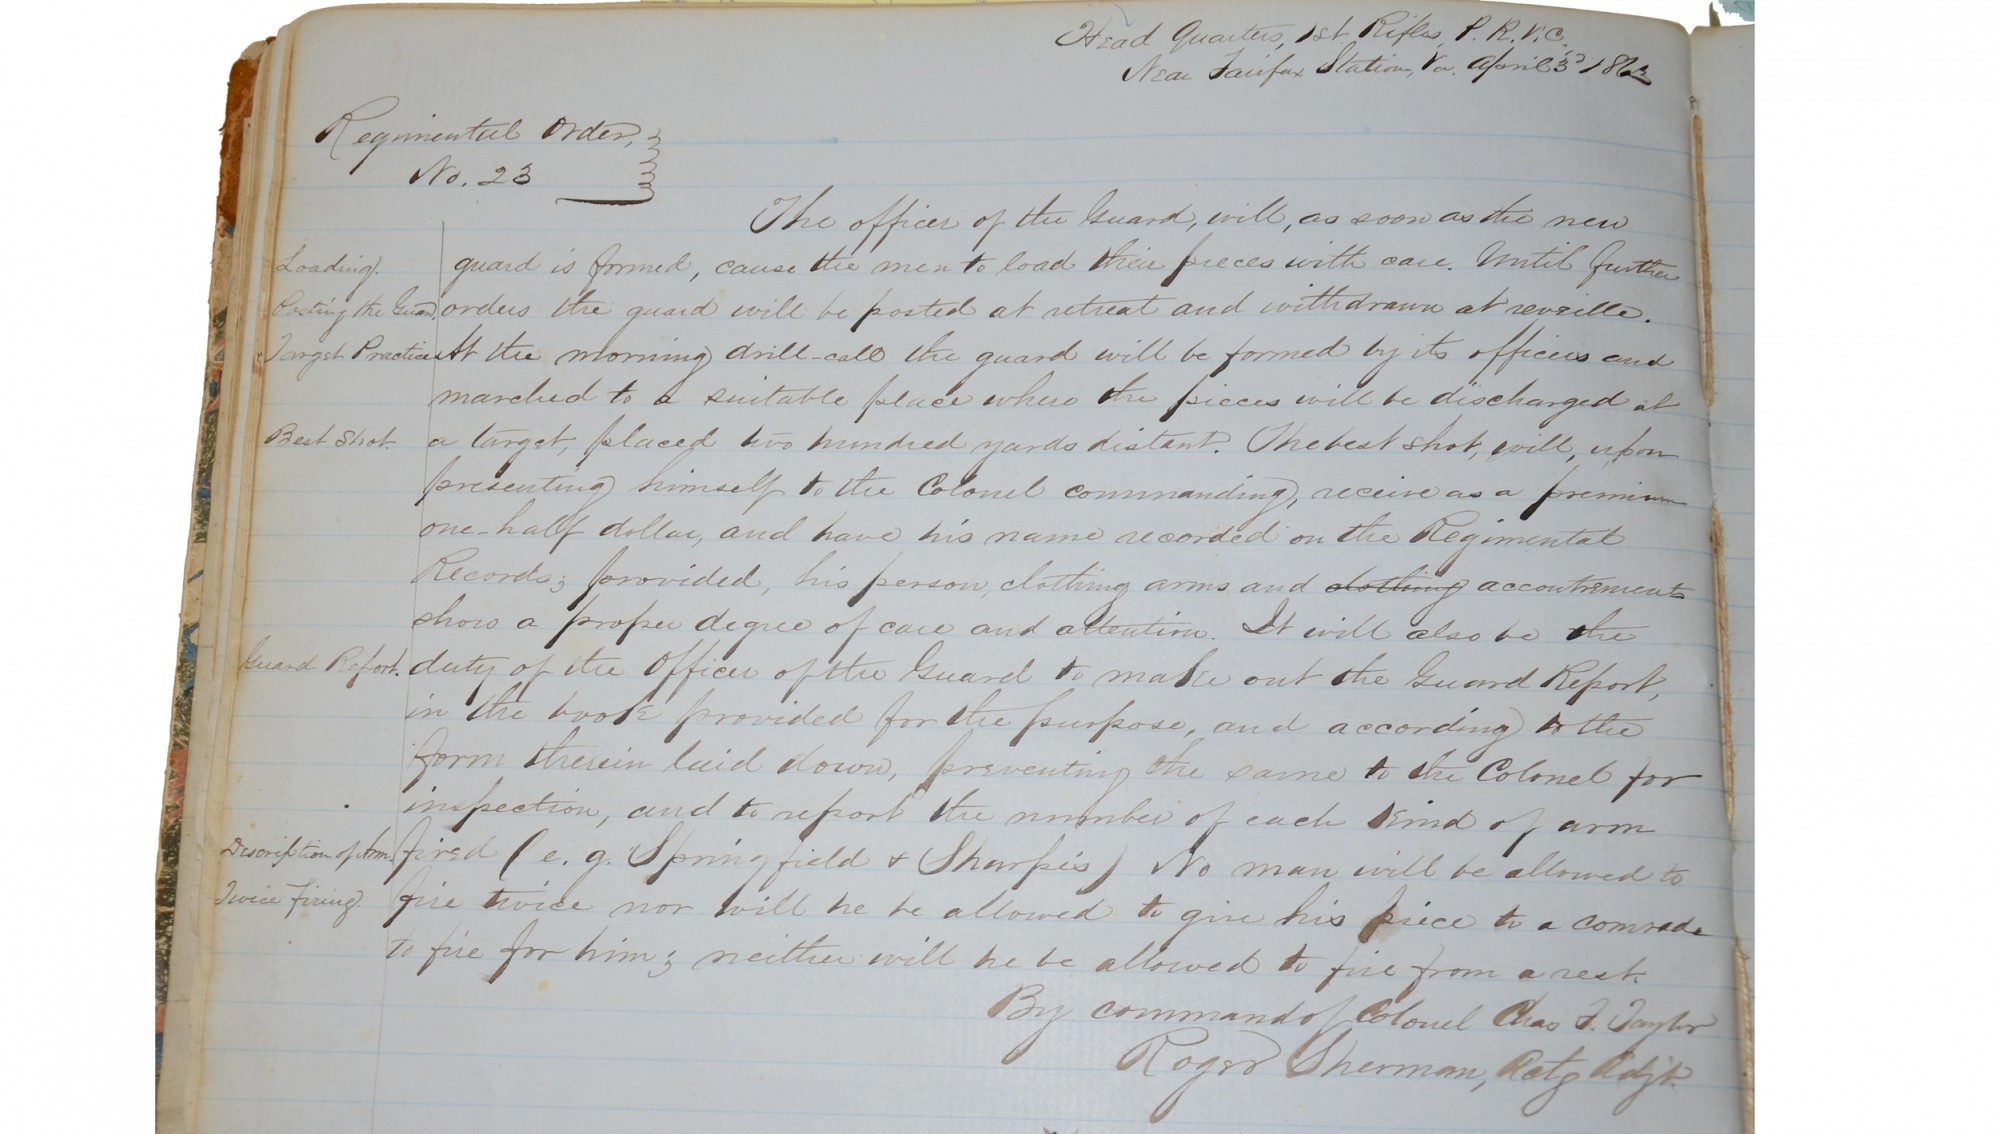 Head Quarters, 1st Rifles, P. R. V. C.
Near Fairfax Station, Va. April 3d 1863
Regimental Order,
No. 23
The officer of the Guard, will, as soon as the new
Loading. guard is formed, cause the men to load their pieces with care. Until further
Posting the Guard. orders the guard will be posted at retreat and withdrawn at reveille.
Target Practice At the morning drill-call the guard will be formed by its officers and
marched to a suitable place where the pieces will be discharged at
Best Shot. a target, placed two hundred yards distant. The best shot, will, upon
presenting himself to the Colonel commanding, receive as a premium
one-half dollar, and have his name recorded on the Regimental
Records; provided, his person, clothing arms and clothing accoutrements
show a proper degree of care and attention. It will also be the
Guard Report. duty of the Officer of the Guard to make out the Guard Report,
in the book provided for the purpose, and according to the
form therein laid down, preventing the same to the Colonel for
inspection, and to report the number of each kind of arm
Description of Arm fired (e. g. Springfield & Sharpe's) No man will be allowed to
Twice Firing. fire twice nor will he be allowed to give his piece to a comrade
to fire for him; neither will he be allowed to fire from a rest.
By command of Colonel Chas F. Taylor
Roger Sherman, Actg Adjt.